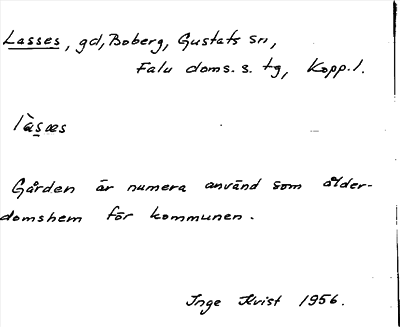 Lasses, gd, Boberg, Gustafs sn,
Falu doms. s. tg, Kopp. l.
làsæs
Gården är numera använd som ålder-
domshem för kommunen.
Inge Kvist 1956.